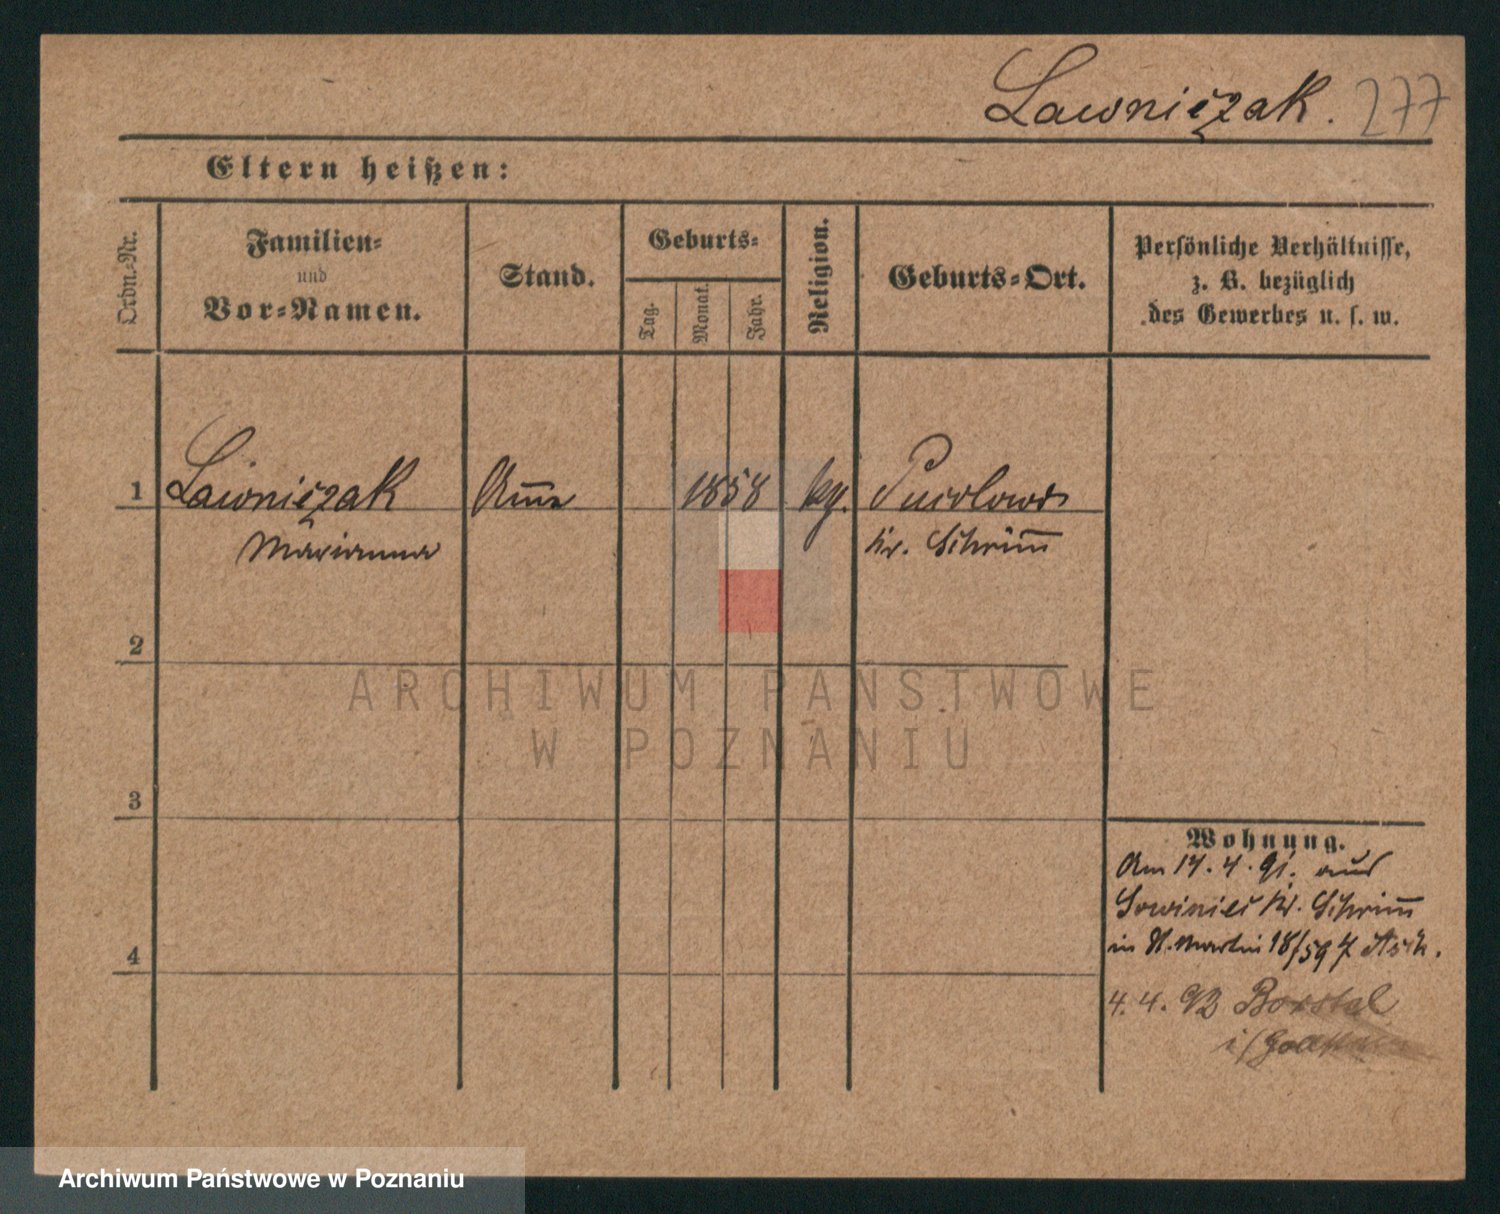 Lawniczak. 277
Eltern heißen:
Ordn.-Nr.
Familien-
und
Vor-Namen.
Stand.
Geburts-
Tag.
Monat.
Jahr.
Religion.
Geburts-Ort.
Persönliche Verhältnisse,
z. B. bezüglich
des Gewerbes u. s. w.
1 Lawniczak 1858
Marianna Kr. Schrim̅
2
3
4
Wohnung.
Am 17. 4. 91. aus
Kr. Schrim̅
in St. Martin 18/59
4. 4. 93 Borstal
ARCHIWUM PAŃSTWOWE
W POZNANIU
Archiwum Państwowe w Poznaniu